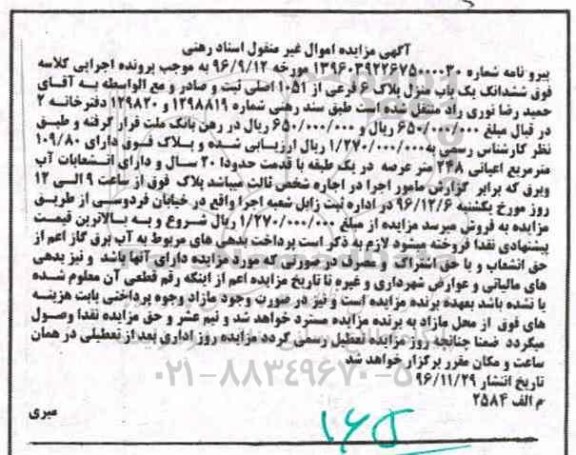 آگهی مزایده اموال غیر منقول اسناد رهنی
پیرو نامه شماره ۱۳۹۶۰۳۹۲۲۶۷۵۰۰۰۰۳۰ مورخه ۹۶/۹/۱۲ به موجب پرونده اجرایی کلاسه
فوق ششدانگ یک باب منزل پلاک ۶ فرعی از ۱۰۵۱ اصلی ثبت و صادر و مع الواسطه به آقای
حمید رضا نوری راد منتقل شده است طبق سند رهنی شماره ۱۲۹۸۸۱۹ و ۱۲۹۸۲۰ دفترخانه ۲
در قبال مبلغ ۶۵۰/۰۰۰/۰۰۰ ریال و ۶۵۰/۰۰۰/۰۰۰ ریال در رهن بانک ملت قرار گرفته و طبق
نظر کارشناس رسمی به ۱/۲۷۰/۰۰۰/۰۰۰ ریال ارزیابی شده و پلاک فوق دارای ۱۰۹/۸۰
مترمربع اعیانی ۲۴۸ متر عرصه در یک طبقه با قدمت حدودا ۲۰ سال و دارای انشعابات آب
وبرق که برابر گزارش مامور اجرا در اجاره شخص ثالث میباشد پلاک فوق از ساعت ۹ الی ۱۲
روز مورخ یکشنبه ۹۶/۱۲/۶ در اداره ثبت زابل شعبه اجرا واقع در خیابان فردوسی از طریق
مزایده به فروش میرسد مزایده از مبلغ ۱/۲۷۰/۰۰۰/۰۰۰ ریال شروع و به بالاترین قیمت
پیشنهادی نقدا فروخته میشود لازم به ذکر است پرداخت بدهی های مربوط به آب برق گاز اعم از
حق انشعاب و یا حق اشتراک و مصرف در صورتی که مورد مزایده دارای آنها باشد و نیز بدهی
های مالیاتی و عوارض شهرداری و غیره تا تاریخ مزایده اعم از اینکه رقم قطعی آن معلوم شده
یا نشده باشد بعهده برنده مزایده است و نیز در صورت وجود مازاد وجوه پرداختی بابت هزینه
های فوق از محل مازاد به برنده مزایده مسترد خواهد شد و نیم عشر و حق مزایده نقدا وصول
میگردد ضمنا چنانچه روز مزایده تعطیل رسمی گردد مزایده روز اداری بعد از تعطیلی در همان
ساعت و مکان مقرر برگزار خواهد شد
۰۲۱-۸۸۳۴۹۶۷۰-۵
تاریخ انتشار ۹۶/۱۱/۲۹
م الف ۲۵۸۴
میری
۱۶۵